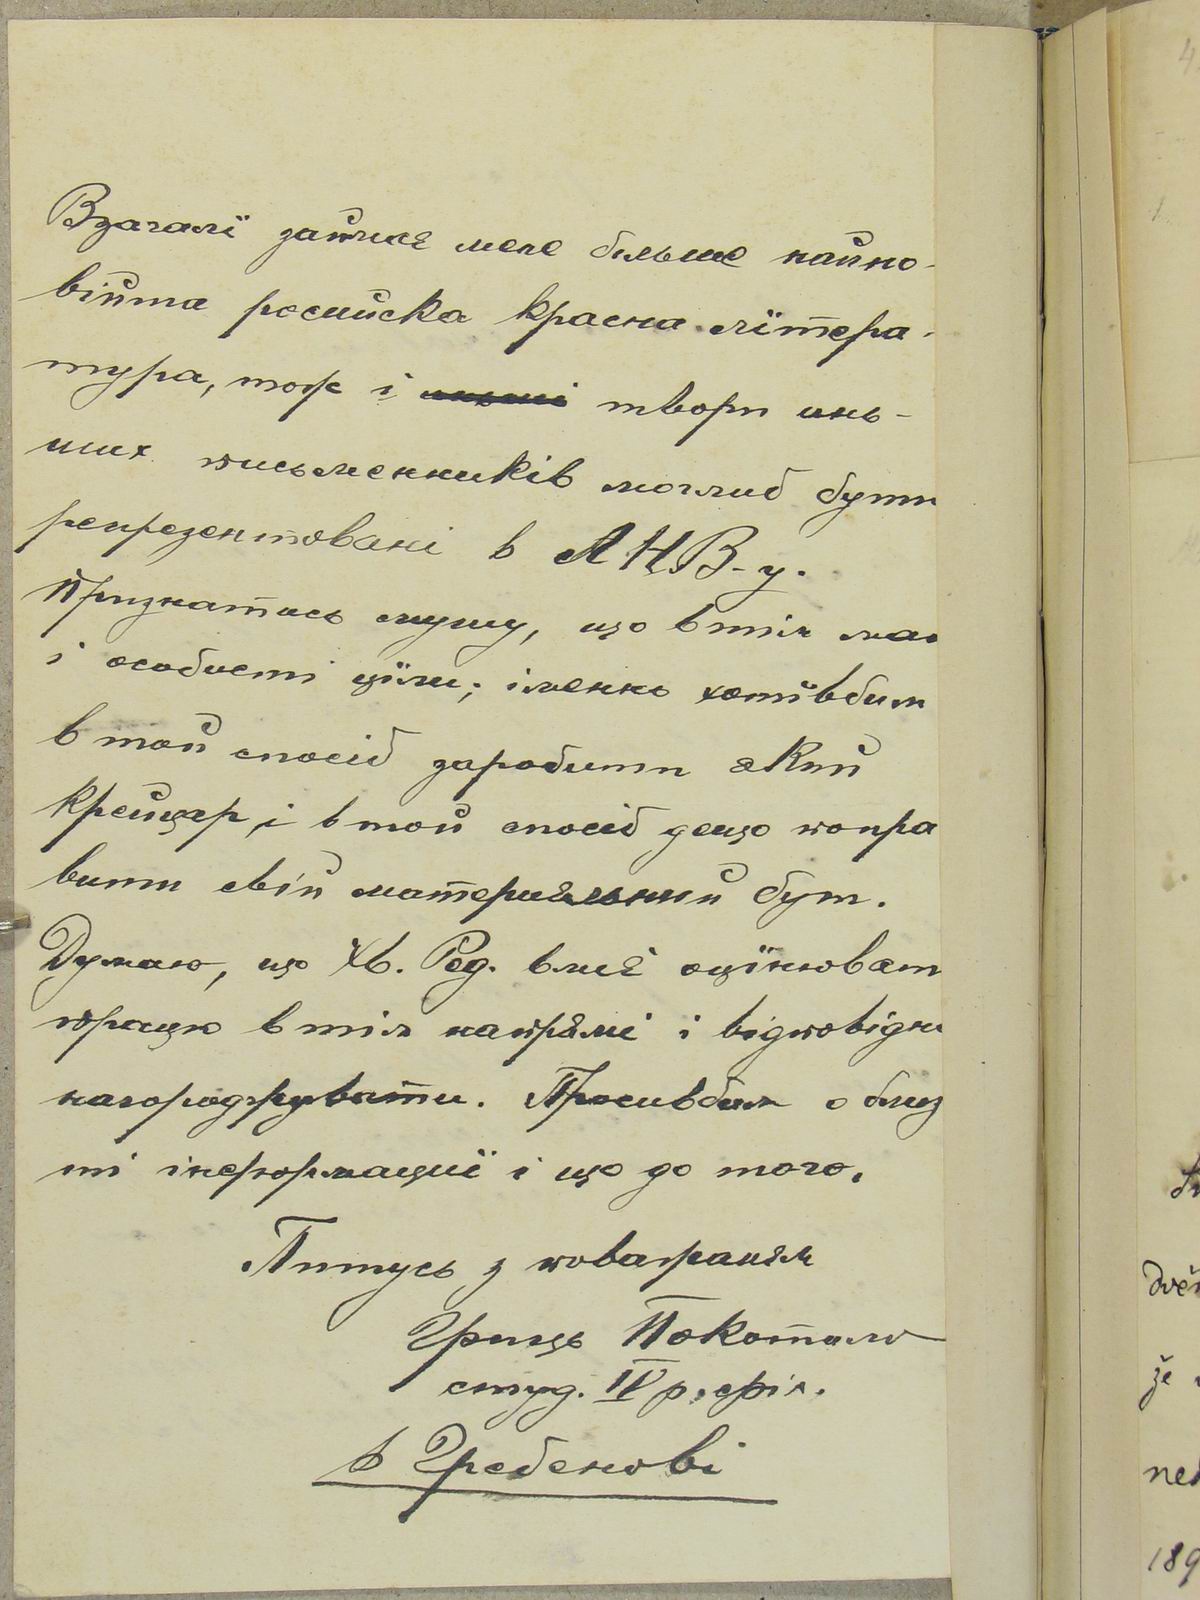 Взагалї займає мене більше найно-
війша росийска красна лїтера-
тура, тож і твори инь-
ших письменників моглиб бути
репрезентовані в ЛНВ-у.
Признатись мушу, що в тім маю
і особисті цїли; іменно хотївбим
в той спосіб заробити який
крейцар, і в той спосіб дещо попра
вити свій материяльний бут.
Думаю, що Хв. Ред. вмиє оцїнюват
працю в тім напрямі і відповідно
нагороджувати. Просивбим о близ
ші інформациї і що до того.
Пишусь з поважанєм
Гриць Покотило
студ. IV р. філ.
в Гребенові
4
дvě
že
neb
189